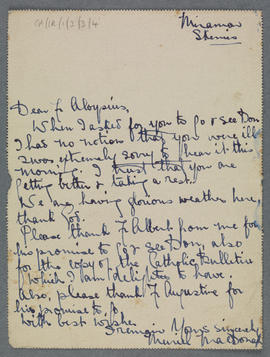 CA/IR/1/2/3/4
Miramar
Skerries
Dear Fr Aloysius,
When I asked for you to go & see Don
I had no notion that you were ill
I was extremely sorry to hear it this
morning. I trust that you are
getting better & taking a rest.
We are having glorious weather here,
thank God.
Please thank Fr Albert from me for
his promise to go & see Don, also
for the copy of the Catholic Bulletin
which I am delighted to have.
Also, please thank Fr Augustine for
his promise to go.
With best wishes
I remain Yours sincerely
Muriel MacDonagh